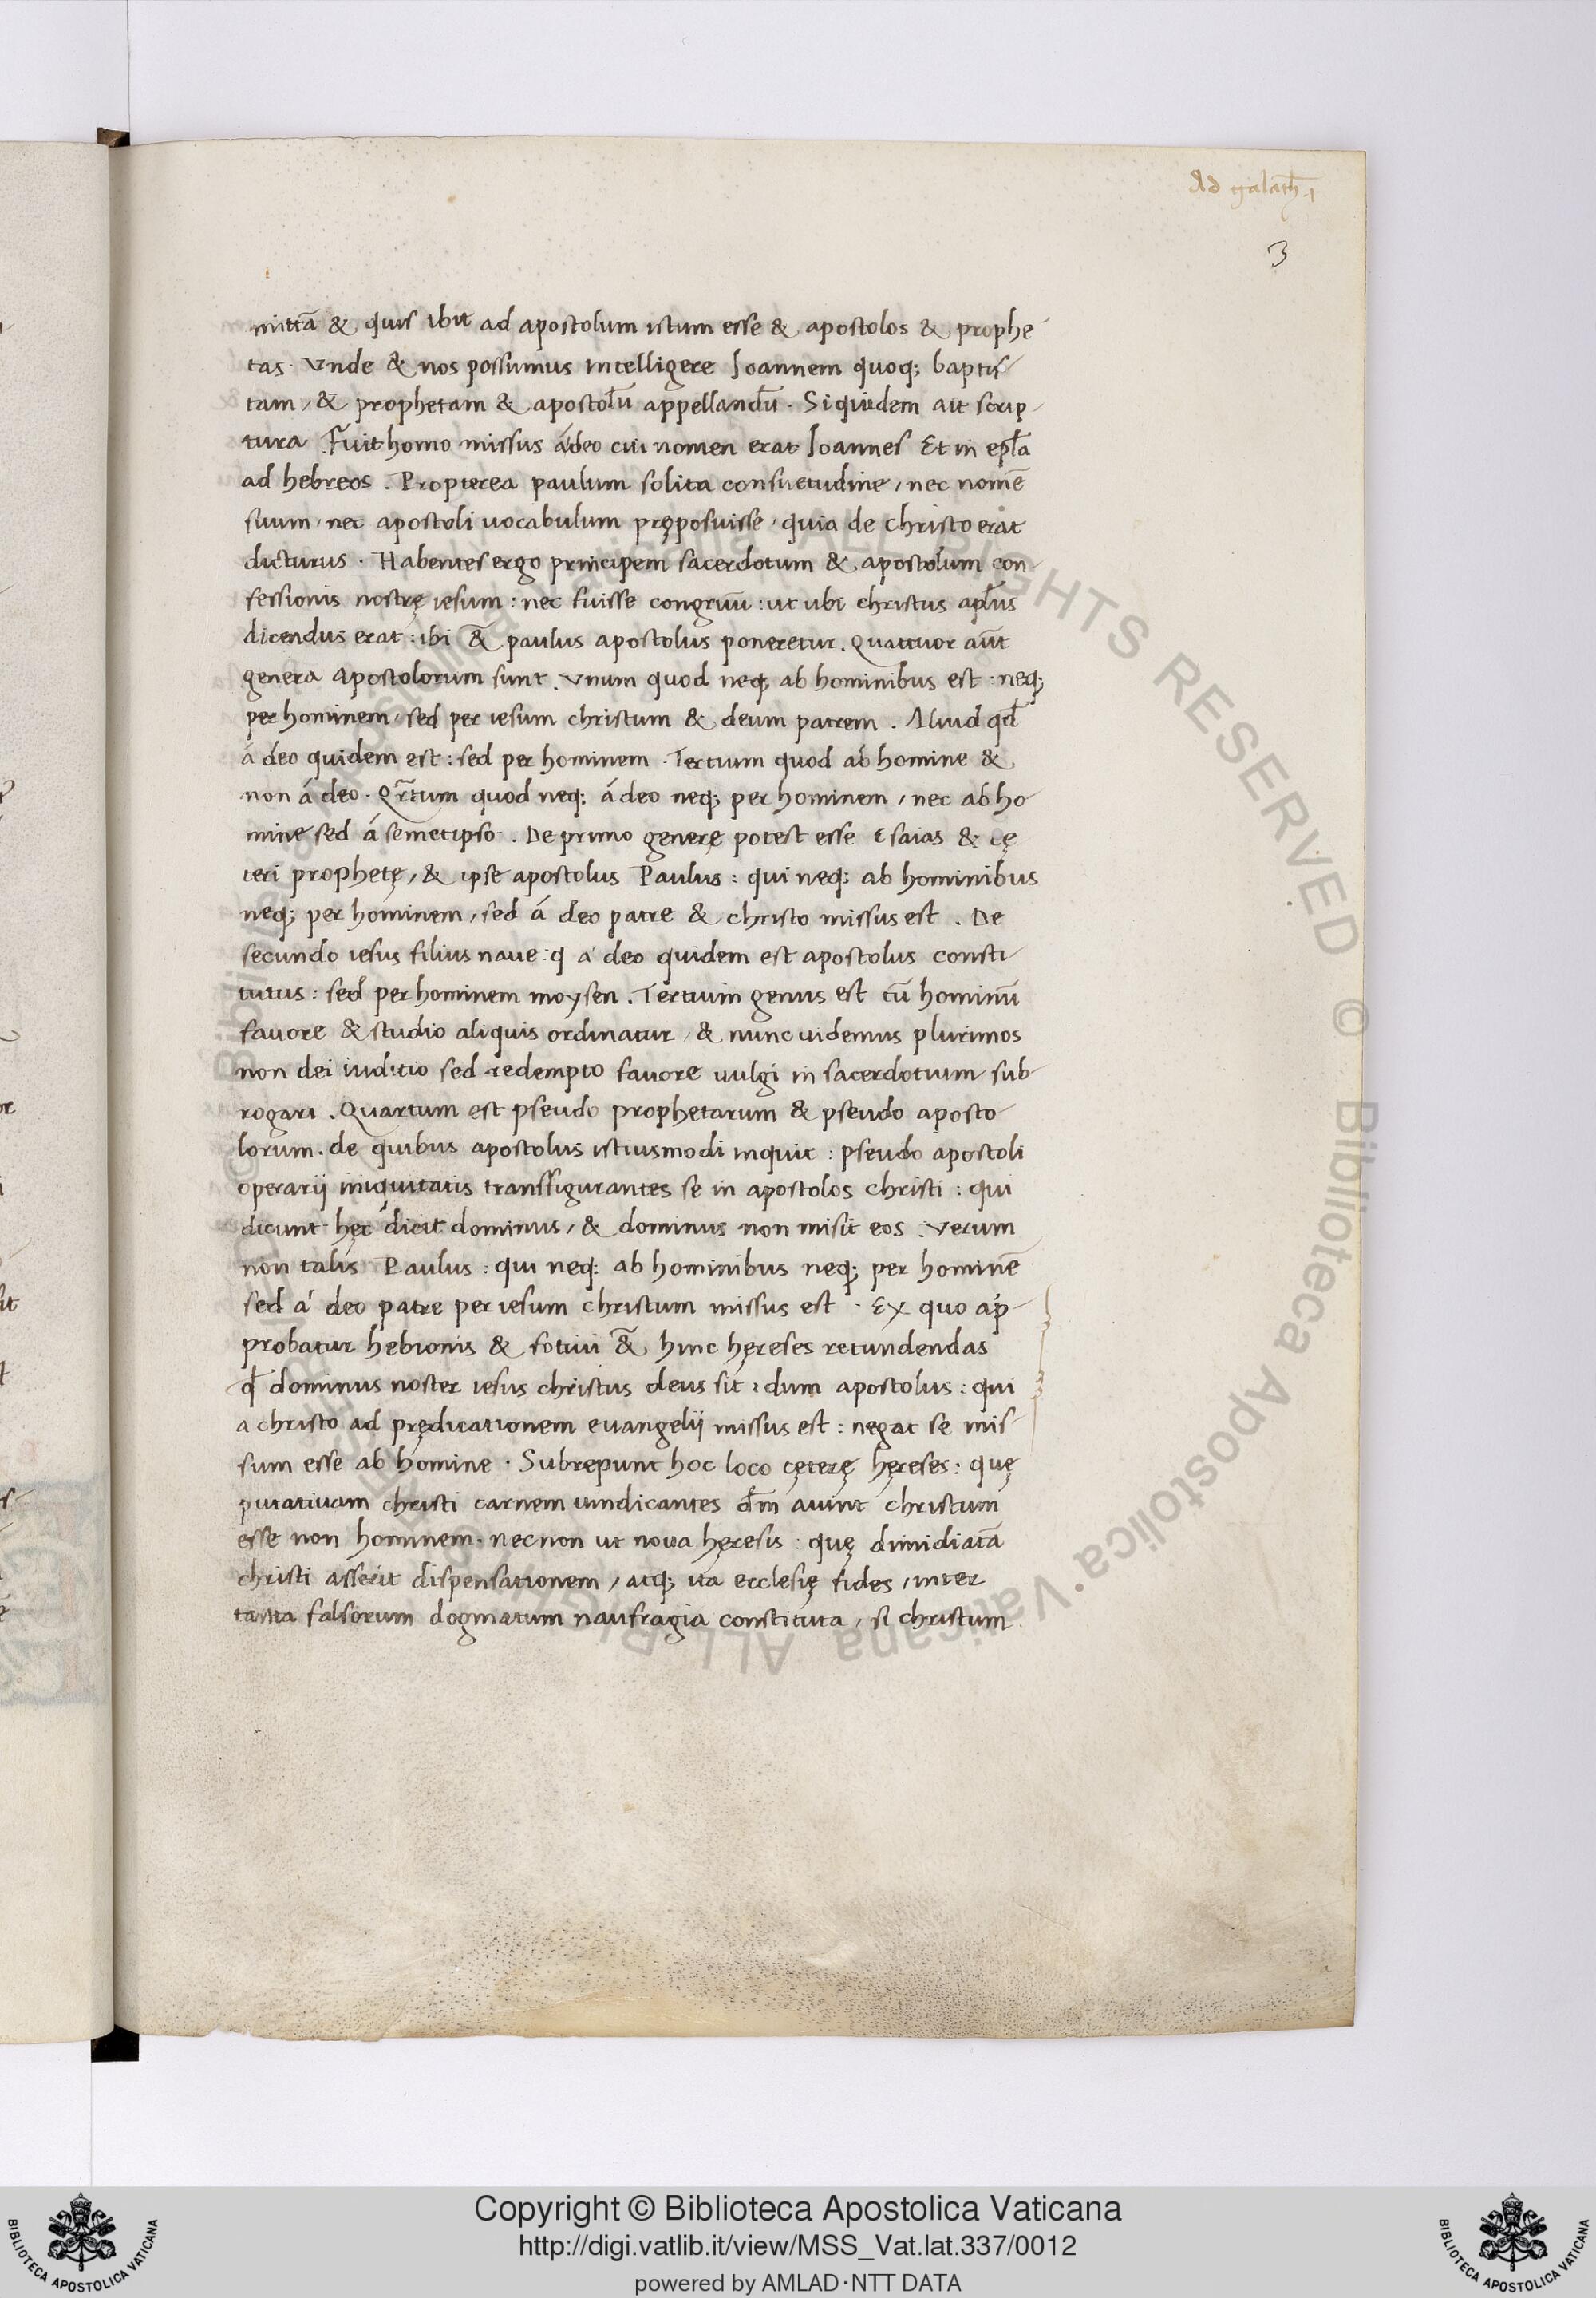 Ad galath̄.1
3
mittā & quis ibit ad apostolum istum esse & apostolos & prophe-
tas. Vnde & nos possumus intelligere Ioannem quoq; baptis-
tam, & prophetam & apostoľu appellandū. Siquidem ait scrip-
tura Fuit homo missus á deo cui nomen erat Ioannes Et in epľa
ad hebreos. Propterea paulum solita consuetudine, nec nomē
suum, nec apostoli uocabulum pręposuisse, quia de christo erat
dicturus. Habentes ergo principem sacerdotum & apostolum con-
fessionis nostrę iesum: nec fuisse congruū: ut ubi christus apľus
dicendus erat: ibi &̃ paulus apostolus poneretur. Quattuor aūt
genera apostolorum sunt. Vnum quod neq; ab hominibus est: neq;
per hominem, sed per iesum christum & deum patrem. Aliud qđ
á deo quidem est: sed per hominem. Tertium quod ab homine &
non á deo. Qr̃tum quod neq; á deo neq; per hominem, nec ab ho-
mine sed á semetipso. De primo generę potest esse Esaias & cę-
teri prophetę, & ipse apostolus Paulus: qui neq; ab hominibus
neq; per hominem, sed á deo patre & christo missus est. De
secundo iesus filius naue: q á deo quidem est apostolus consti-
tutus: sed per hominem moysen. Tertium genus est cū hominū
fauore & studio aliquis ordinatur, & nunc uidemus plurimos
non dei iuditio sed redempto fauore uulgi in sacerdotium sub-
rogari. Quartum est pseudo prophetarum & pseudo aposto-
lorum. de quibus apostolus istiusmodi inquit: pseudo apostoli
operarij iniquitatis transfigurantes se in apostolos christi: qui
dicunt hęc dicit dominus, & dominus non misit eos. Verum
non talis Paulus: qui neq; ab hominibus neq; per hominē
sed á deo patre per iesum christum missus est. Ex quo ap-
probatur hebionis & fotini &̃ hinc hęreses retundendas
qđ dominus noster iesus christus deus sit: dum apostolus: qui
a christo ad prędicationem euangelij missus est: negat se mis-
sum esse ab homine. Subrepunt hoc loco cęterę hęreses: quę
putatiuam christi carnem uindicantes dm̄ aiunt christum
esse non hominem. necnon ut noua hęresis: quę dimidiatā
christi asserit dispensationem, atq; ita ecclesię fides, inter
tanta falsorum dogmatum naufragia constituta, si christum
Copyright © Biblioteca Apostolica Vaticana
http://digi.vatlib.it/view/MSS_Vat.lat.337/0012
powered by AMLAD·NTT DATA
BIBLIOTECA APOSTOLICA VATICANA
BIBLIOTECA APOSTOLICA VATICANA